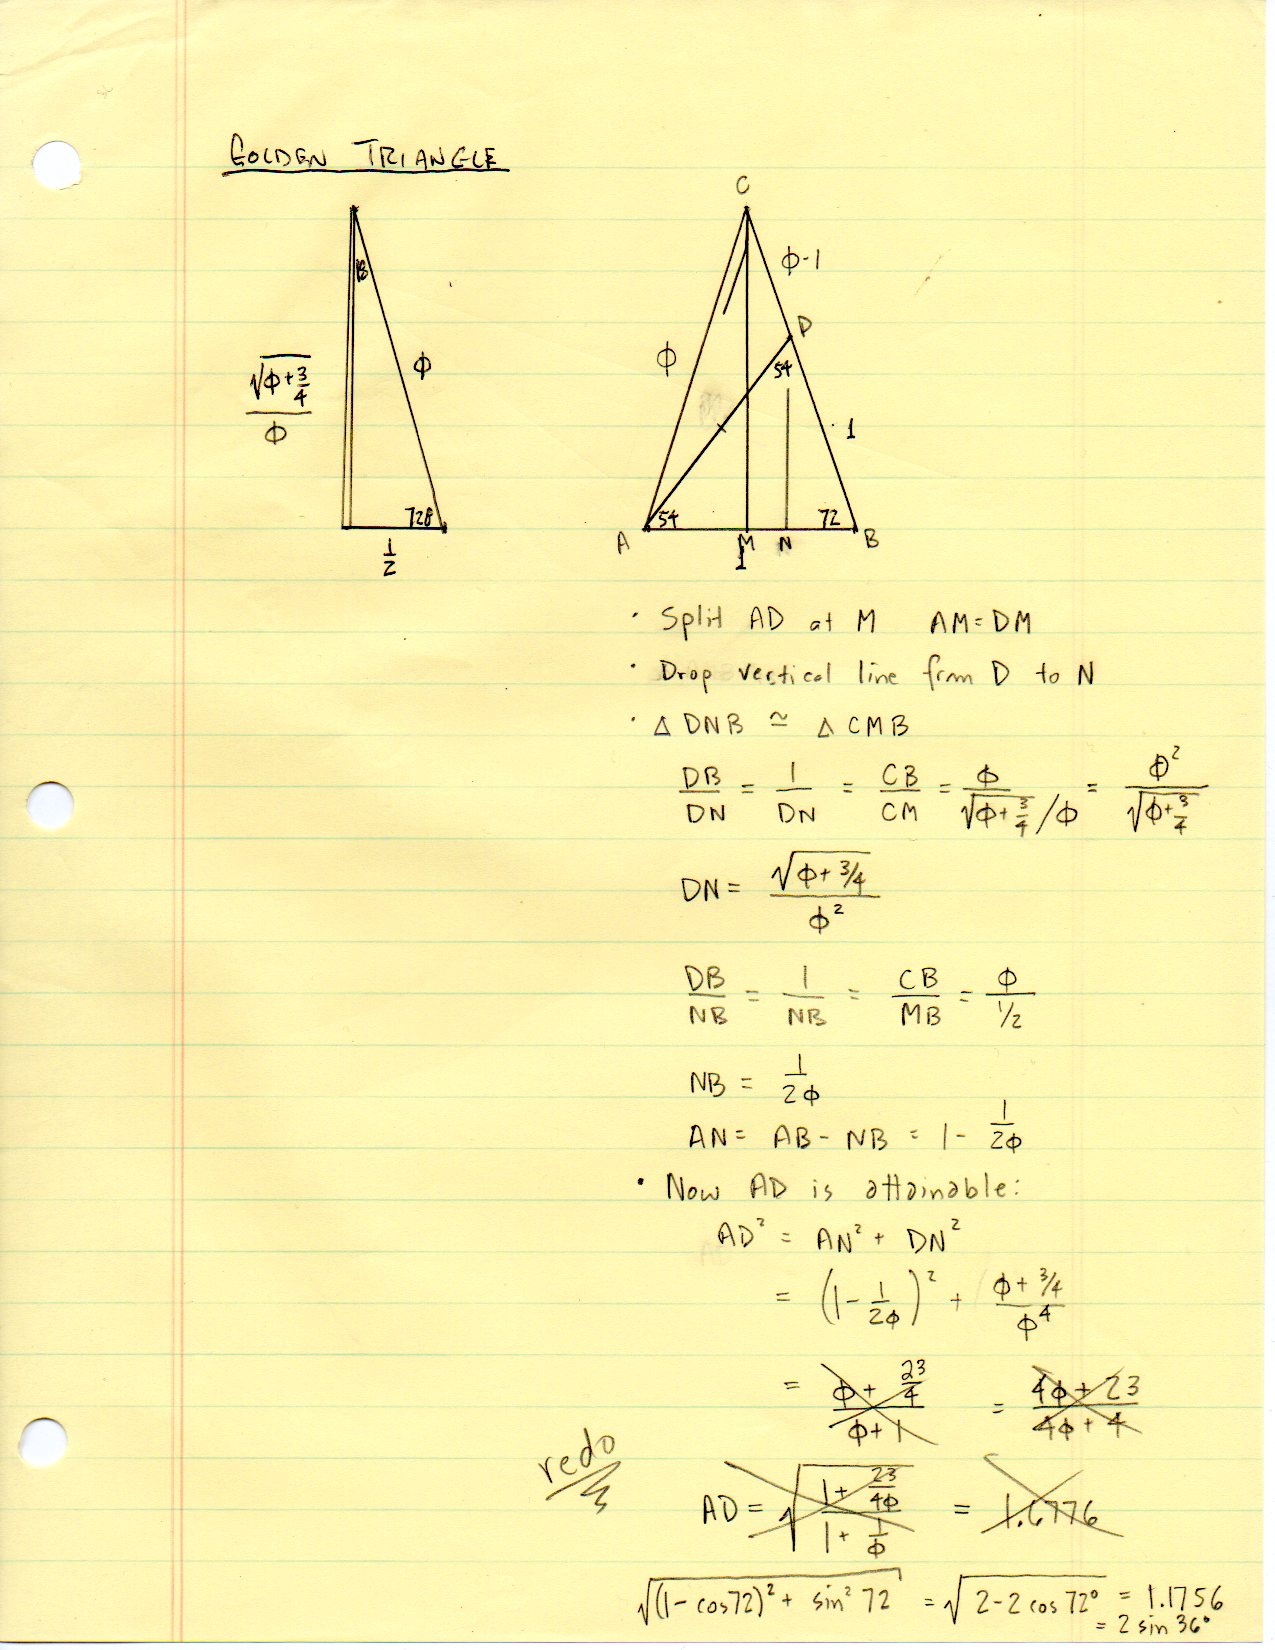 GOLDEN TRIANGLE
18
√(ϕ+3/4)/ϕ
ϕ
1/2
C
ϕ-1
ϕ
D
54
1
54
72
A
M
N
B
1
· Split AD at M AM=DM
· Drop vertical line from D to N
· Δ DNB ≃ Δ CMB
DB/DN = 1/DN = CB/CM = ϕ/(√(ϕ+3/4)/ϕ) = ϕ²/√(ϕ+3/4)
DN = √(ϕ+3/4)/ϕ²
DB/NB = 1/NB = CB/MB = ϕ/(1/2)
NB = 1/2ϕ
AN = AB - NB = 1 - 1/2ϕ
· Now AD is attainable:
AD² = AN² + DN²
= (1 - 1/2ϕ)² + (ϕ+3/4)/ϕ⁴
= (ϕ+23/4)/(ϕ+1) = (4ϕ+23)/(4ϕ+4)
redo
AD = √((1+23/4ϕ)/(1+1/ϕ)) = 1.6776
√((1-cos72)² + sin² 72) = √(2-2 cos 72°) = 1.1756
= 2 sin 36°